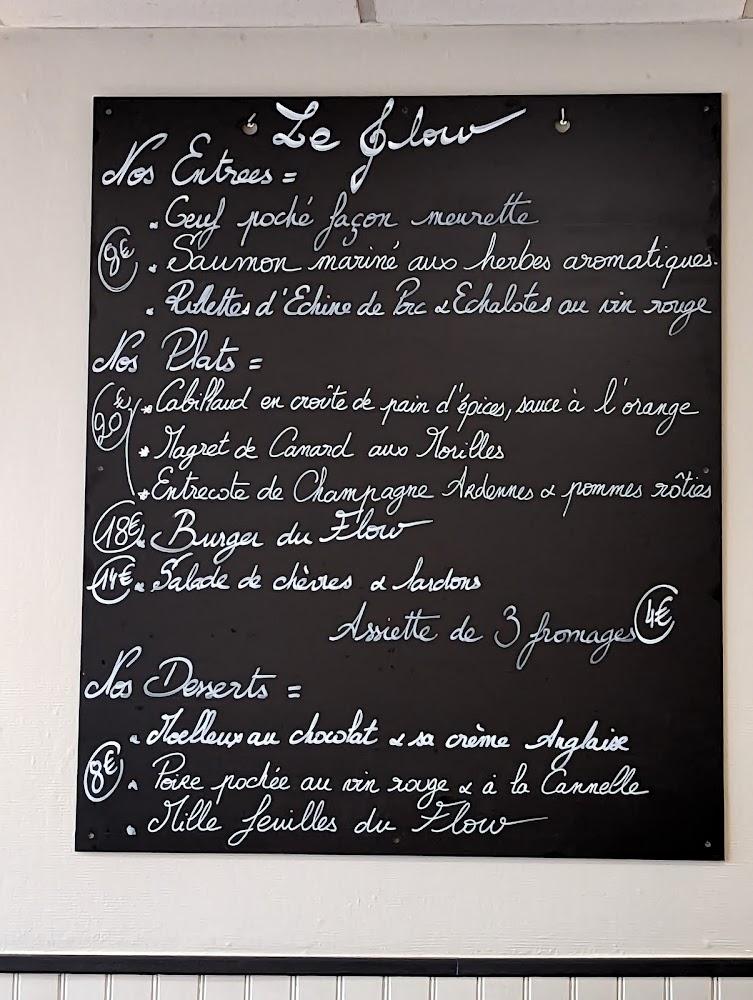 Le Flow
Nos Entrees =
. Oeuf poché façon meurette
8€ . Saumon mariné aux herbes aromatiques.
. Rillettes d'Echine de Porc & Echalotes au vin rouge
Nos Plats =
20€ * Cabillaud en croûte de pain d'épices, sauce à l'orange
* Magret de Canard aux Morilles
* Entrecote de Champagne Ardennes & pommes rôties
18€ . Burger du Flow
14€ . Salade de chèvres & lardons
Assiette de 3 fromages 4€
Nos Desserts =
. Moelleux au chocolat & sa crème Anglaise
8€ . Poire pochée au vin rouge & à la Cannelle
. Mille feuilles du Flow